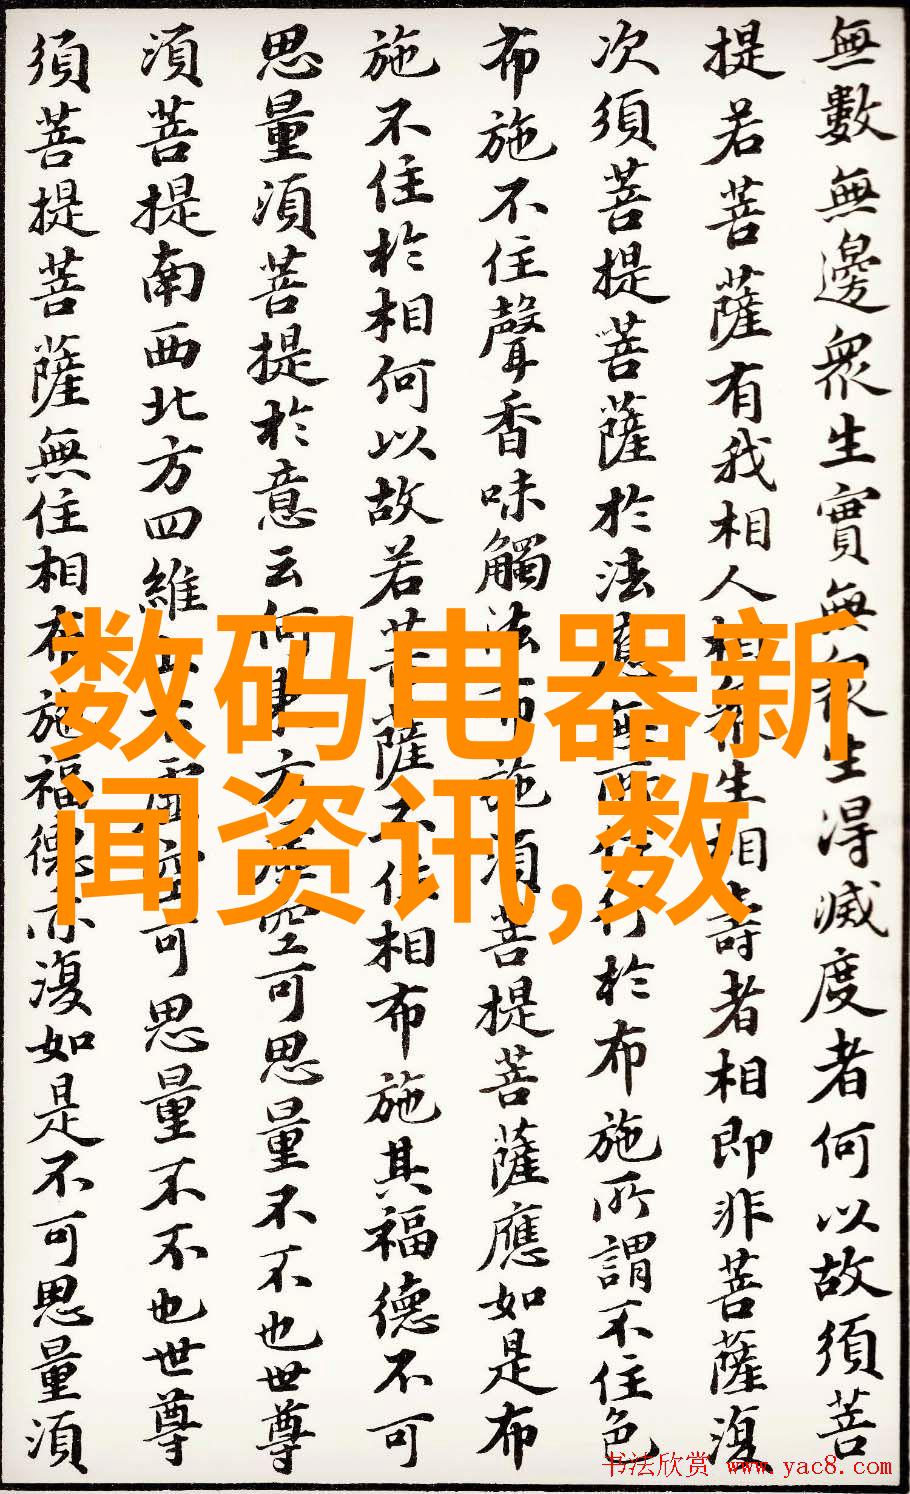 無數無邊眾生實無眾生得滅度者何以故須菩
提若菩薩有我相人相眾生相壽者相即非菩薩復
次須菩提菩薩於法應無所住行於布施所謂不住色
布施不住聲香味觸法布施須菩提菩薩應如是布
施不住於相何以故若菩薩不住相布施其福德不可
思量須菩提於意云何東方虛空可思量不不也世尊
須菩提南西北方四維上下虛空可思量不不也世尊
須菩提菩薩無住相布施福德亦復如是不可思量須
数码电器新
闻资讯,数
书法欣赏 www.yac8.com